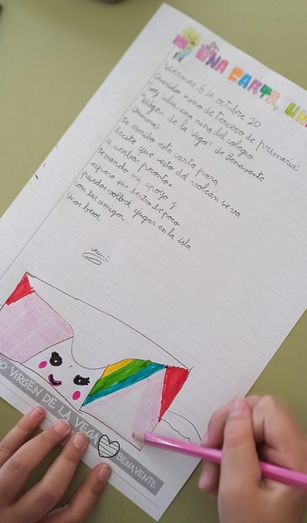 UNA CARTA, UN
Viernes, 6 de octubre 20
Querido niño de tercero de primaria:
Soy una niña del colegio
"Virgen de la Vega" de Benavente
Te escribo esta carta para
decirte que esto del volcán se va
a acabar pronto.
Te mando mi apoyo y
espero que dentro de poco
puedas volver a jugar en la isla
con tus amigos.
Unos besos
O VIRGEN DE LA VEGA
BENAVENTE